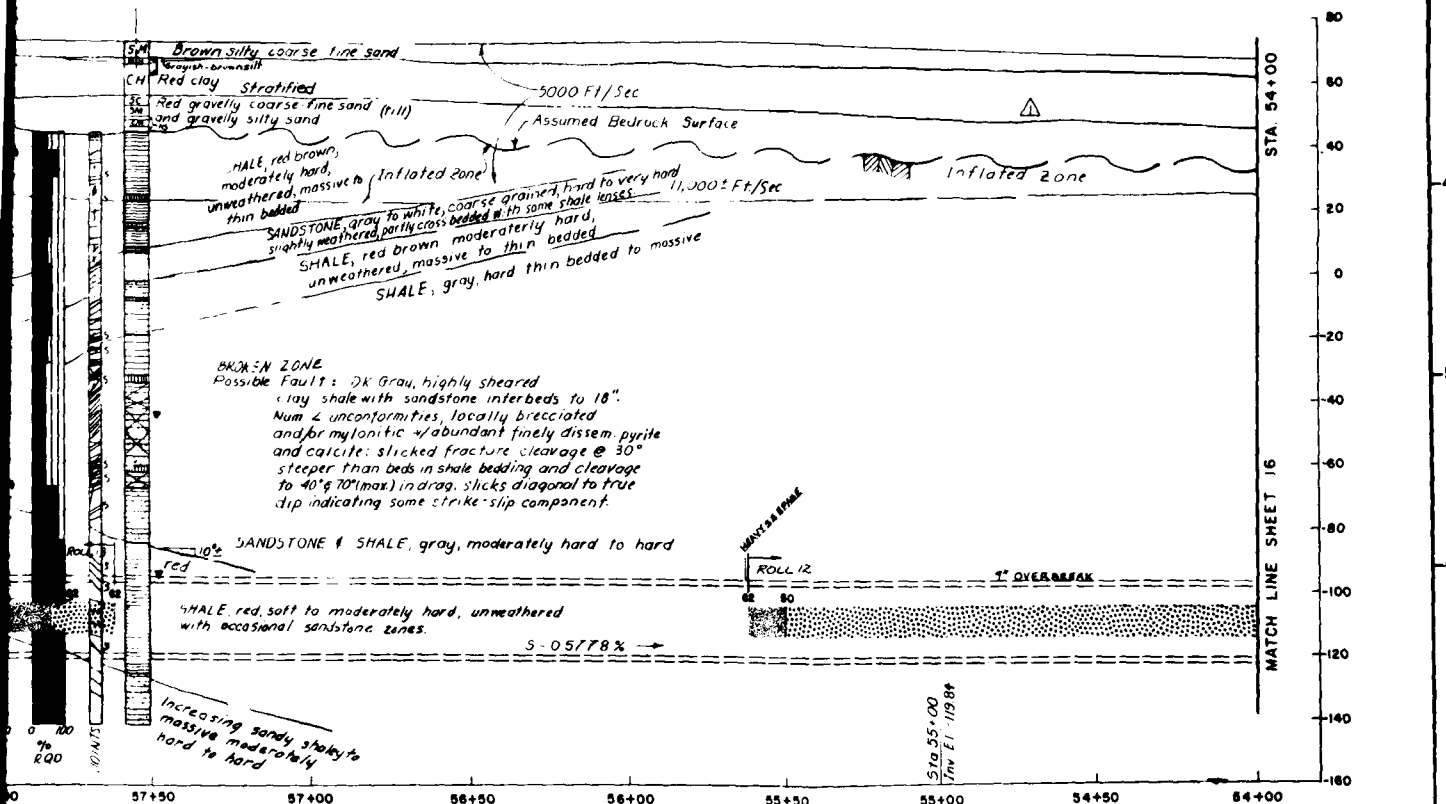 80
SM
Brown silty coarse fine sand
Grayish-brown silt
CH
Red clay
Stratified
60
STA. 54+00
5000 Ft/Sec
SC
SM
Red gravelly coarse fine sand (till)
and gravelly silty sand
Assumed Bedrock Surface
40
HALE, red brown,
moderately hard,
unweathered, massive to
thin bedded
Inflated Zone
Inflated Zone
SANDSTONE, gray to white, coarse grained, hard to very hard
slightly weathered, partly cross bedded with some shale lenses
11,000± Ft/Sec
20
SHALE, red brown moderaterly hard,
unweathered, massive to thin bedded
SHALE, gray, hard thin bedded to massive
0
-20
BROKEN ZONE
Possible Fault: DK Gray, highly sheared
clay shale with sandstone interbeds to 18".
Num ∠ unconformities, locally brecciated
and/or mylonitic w/abundant finely dissem. pyrite
and calcite: slicked fracture cleavage @ 30°
steeper than beds in shale bedding and cleavage
to 40° & 70° (max.) in drag. slicks diagonal to true
dip indicating some strike-slip component.
-40
-60
MATCH LINE SHEET 16
-80
10°±
SANDSTONE & SHALE, gray, moderately hard to hard
red
ROLL 12
9" OVERBREAK
-100
62
62
62
50
SHALE, red, soft to moderately hard, unweathered
with occasional sandstone zones.
S-05778% →
-120
Sta 55+00
Inv El -119.84
Increasing sandy shaley to
massive moderately
hard to hard
-140
0 100
%
RQD
JOINTS
-160
57+50
57+00
56+50
56+00
55+50
55+00
54+50
54+00